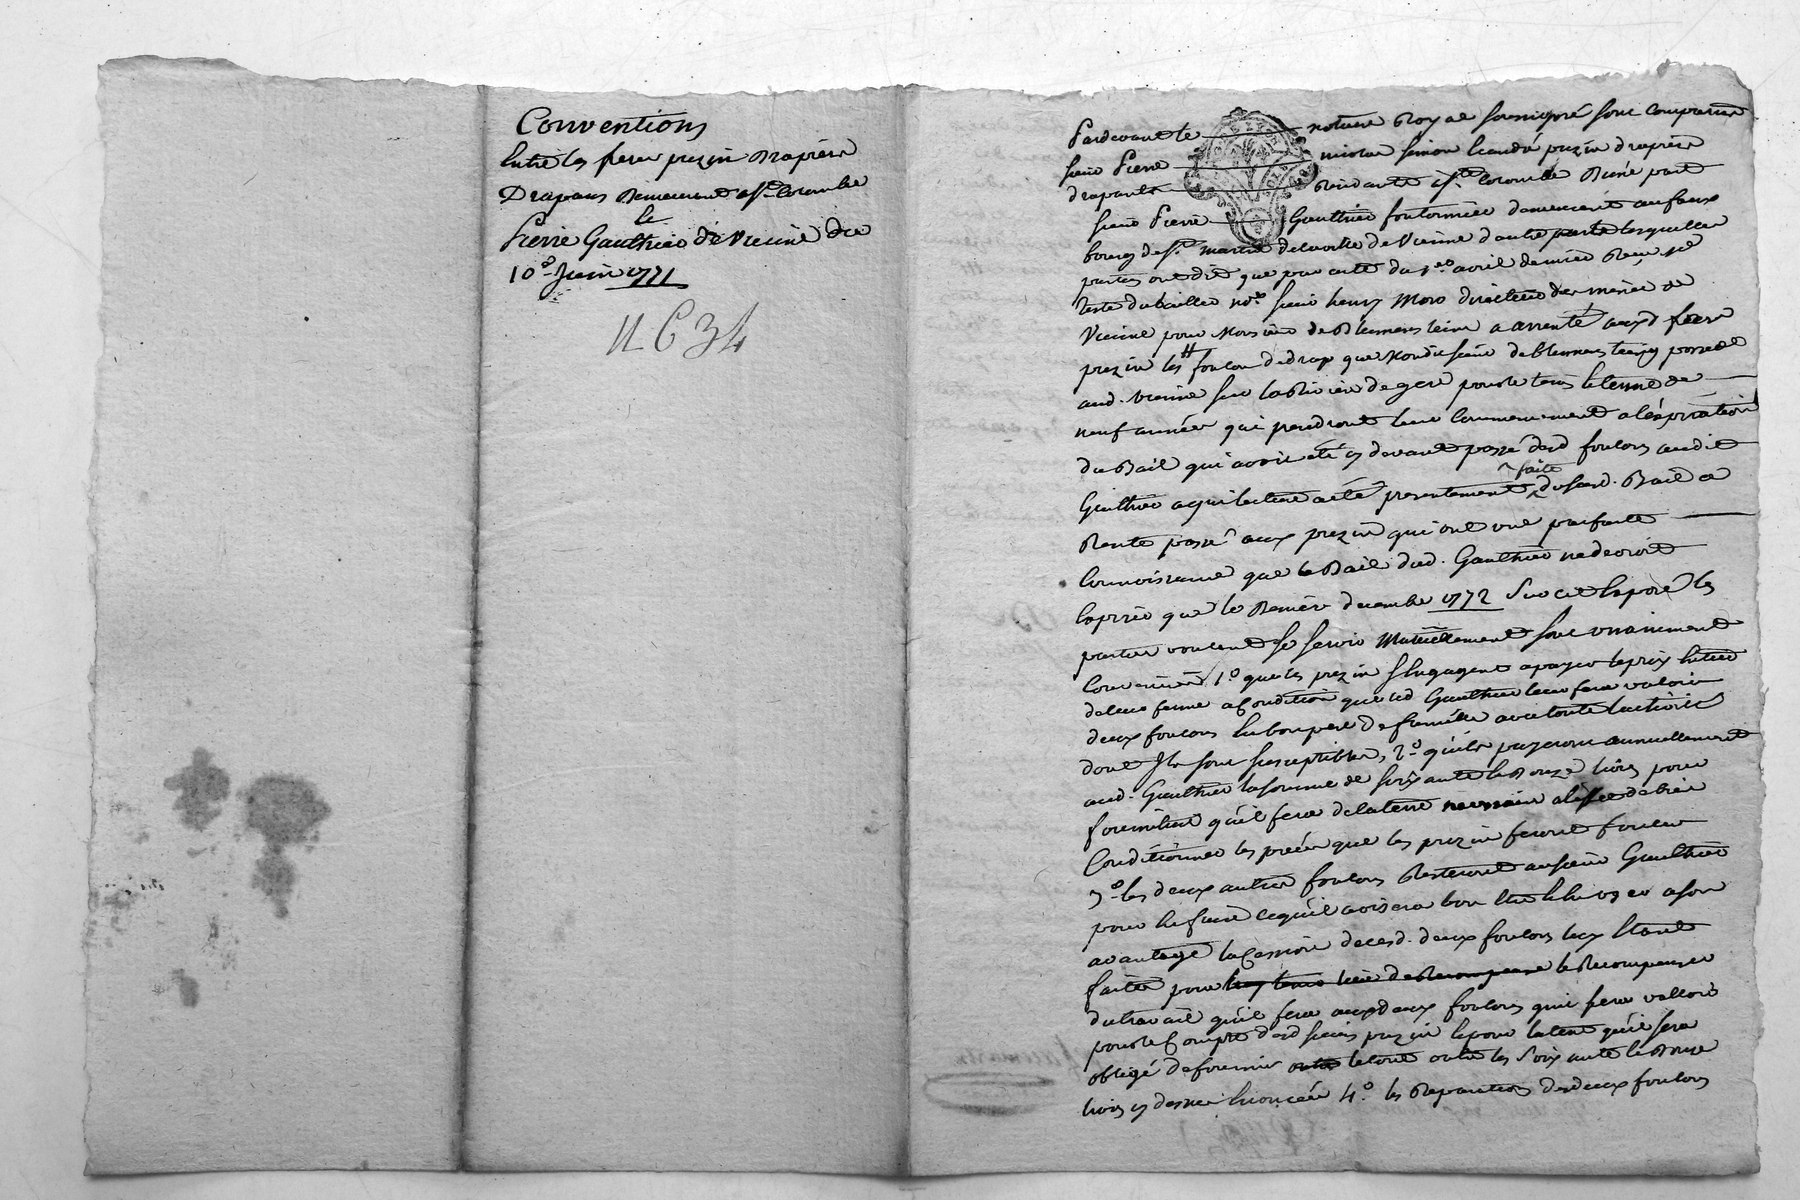 Conventions
Entre les frere prezin
Drapans demeurant a Ste Colombe
&
Pierre Gauthier de Vienne du
10e Juin 1771
11 C 34
Pardevant le notaire Royal soussigné sont comparus
sieur Pierre nicolas simon prezin
drapants Residants à Ste Colombe d'une part
sieur Pierre Gauthier foulonnier demeurant au faux
bourg de St martin de la ville de Vienne d'autre parte lesquelles
parties ont dit que par acte du avril dernier Reçu
sieur henry Moro directeur des mines de
Vienne pour Monsieur de Blumenstein a arrenté aux d frere
prezin les 4 foulon de drap que Mondit sieur de Blumenstein possede
aud. Vienne sur la Riviere de gere pour le tems & terme de
neuf années qui prendront leur Commencement a l'éxpiration
du Bail qui avoit été cy devant passé desd foulons audit
Gauthier a qui lecture a été presentement faite dususd. Bail a
Rente passé aux prezin qui ont une parfaite
Connoissance que le Bail dud. Gauthier ne devoit
Expirer que le decembre 1772 Sur cet Exposé les
parties voulant se servir Mutuellement sont unanimement
Convenües 1o que les prezin s'Engagent a payer le prix Entier
de leur ferme a Condition que led Gauthier leur fera valoir
deux foulons
dont Ils sont susceptibles, 2o qu'ils payeront annuellement
aud. Gauthier la somme de soixante & douze livres pour
fourniture qu'il fera de la terre necessaire a l'éffet de bien
Conditionner les pieces que les prezin feront fouler
3o les deux autres foulons Resteront au sieur Gauthier
pour En faire ce qu'il avisera bon Etre & Enoger a son
avantage la Cession de cesd. deux foulons luy Etant
faites pour luy tenir lieu de Recompense le Recompenser
du travail qu'il fera aux deux foulons qu'il fera valloir
pour le Compte desd sieurs prezin & pour la terre qu'il sera
obligé de fournir le tout outre les soixante & douze
livres cy dessus Enoncées 4o les Reparations des deux foulons